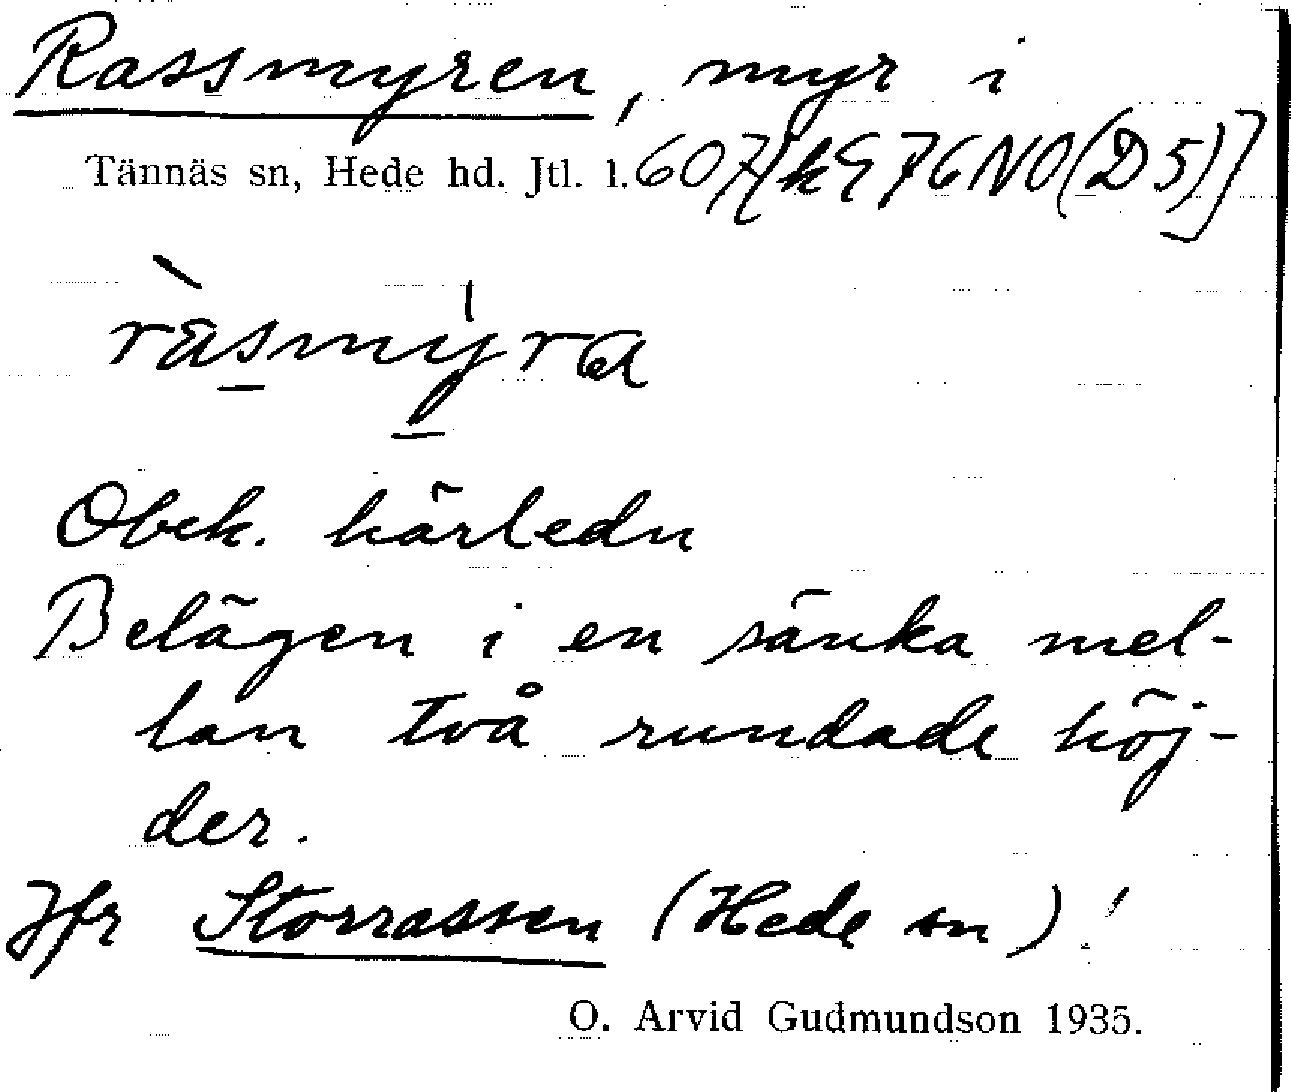 Rassmyren, myr i
Tännäs sn, Hede hd. Jtl. l. 607 [k976NO(D5)]
ràsmýra
Obek. härledn
Belägen i en sänka mel-
lan två rundade höj-
der.
Jfr Storrassen (Hede sn)!
O. Arvid Gudmundson 1935.